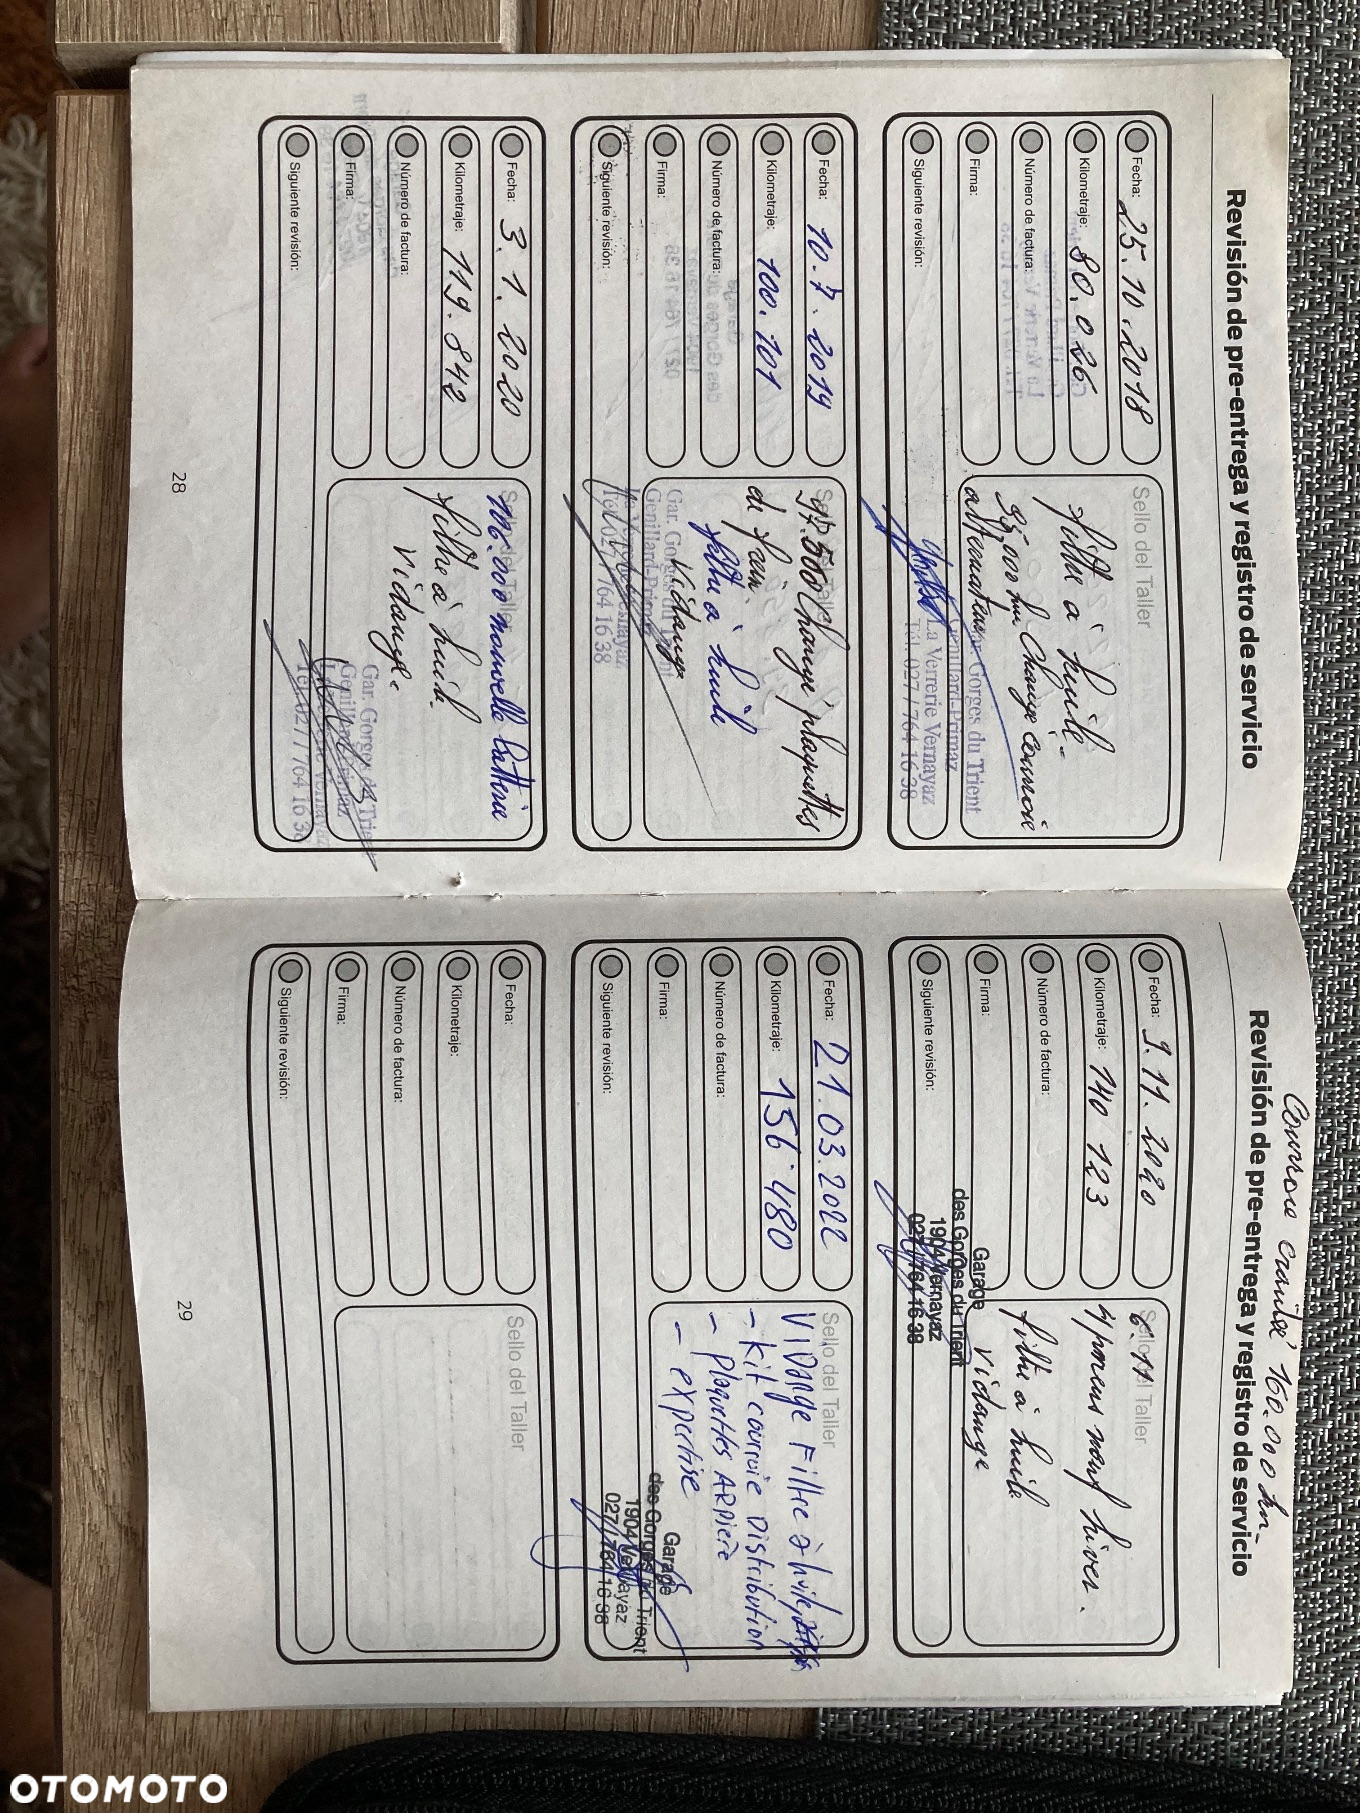 Revisión de pre-entrega y registro de servicio
Fecha: 25.10.2018
Kilometraje: 80.026
Número de factura:
Firma:
Siguiente revisión:
Sello del Taller
filtre à huile
95,000 km Change Courroie
alternateur
Gar. Gorges du Trient
Genillard-Primaz
La Verrerie Vernayaz
Tél. 027 / 764 16 38
Fecha: 10.7.2019
Kilometraje: 100.101
Número de factura:
Firma:
Siguiente revisión:
Sello del Taller
97.500 Change plaquettes
de frein
filtre à huile
Vidange
Gar. Gorges du Trient
Genillard-Primaz
La Verrerie Vernayaz
Tél. 027 / 764 16 38
Fecha: 3.1.2020
Kilometraje: 119.848
Número de factura:
Firma:
Siguiente revisión:
Sello del Taller
106.000 nouvelle batterie
filtre à huile
vidange.
Gar. Gorges du Trient
Genillard-Primaz
La Verrerie Vernayaz
Tél. 027 / 764 16 38
28
Courroie 160.000 km
Revisión de pre-entrega y registro de servicio
Fecha: 9.11.2020
Kilometraje: 140 123
Número de factura:
Firma:
Siguiente revisión:
Sello del Taller
4 pneus neuf hiver.
filtre à huile
vidange
Garage
des Gorges du Trient
1904 Vernayaz
027 / 764 16 38
Fecha: 21.03.2022
Kilometraje: 156.480
Número de factura:
Firma:
Siguiente revisión:
Sello del Taller
Vidange Filtre à huile,
- kit courroie Distribution
- plaquettes ARRiere
- expertise
Garage
des Gorges du Trient
1904 Vernayaz
027 / 764 16 38
Fecha:
Kilometraje:
Número de factura:
Firma:
Siguiente revisión:
Sello del Taller
29
OTOMOTO